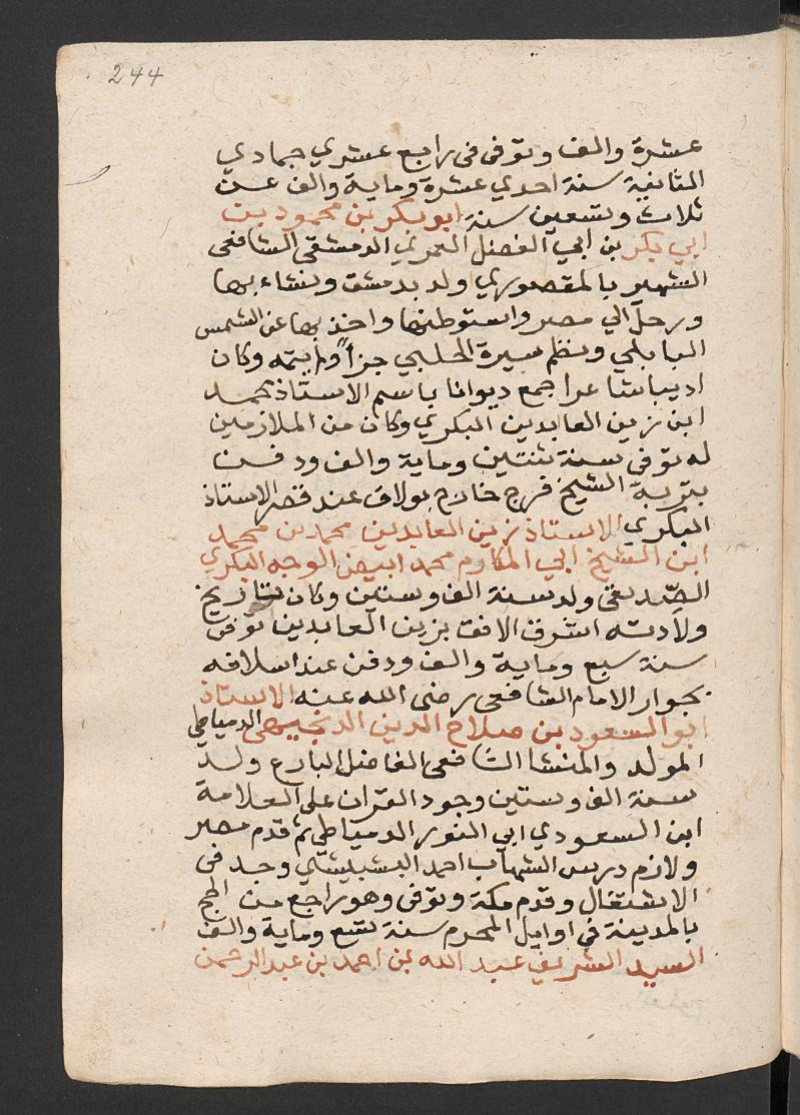 244
عشرة والف وتوفى فى رابع عشري جمادي
الثانية سنة احدي عشرة وماية والف عن
ثلاث وتسعين سنة ابو بكر بن محمود بن
ابي بكر بن ابي الفضل العمري الدمشقى الشافعى
الشهير بالمقصوري ولد بدمشق ونشاء بها
ورحل الي مصر واستوطنها واخذ بها عن الشمس
البابلي ونظم سيرة الحلبي جزأ ولم يتمه وكان
اديبا شاعرا جمع ديوانا باسم الاستاذ محمد
ابن زين العابدين البكري وكان من الملازمين
له توفى سنة ثنتين وماية والف ودفن
بتربة الشيخ فرج خارج بولاق عند قصر الاستاذ
البكري الاستاذ زين العابدين محمد بن محمد
ابن الشيخ ابي المكارم محمد ابيض الوجه البكري
الصديقى ولد سنة الف وستين وكان تاريخ
ولادته اشرق الافق بزين العابدين توفى
سنة سبع وماية والف ودفن عند اسلافه
بجوار الامام الشافعى رضى الله عنه الاستاذ
ابو السعود بن صلاح الدين الدنجيهى الدمياطي
المولد والمنشا الشافعى الفاضل البارع ولد
سنة الف وستين وجود القران على العلامة
ابن السعودي ابي النور الدمياطي ثم قدم مصر
ولازم دروس الشهاب احمد البشبيشي وجد فى
الاشتغال وقدم مكة وتوفى وهو راجع من الحج
بالمدينة في اوايل المحرم سنة تسع وماية والف
السيد الشريف عبد الله بن احمد بن عبد الرحمن